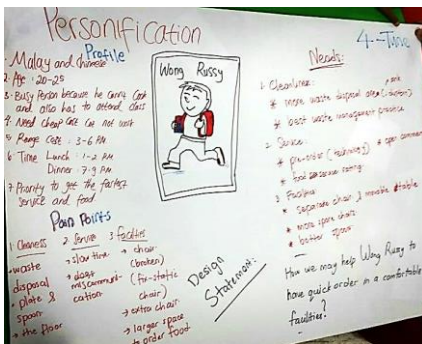 Personification
Profile
1. Malay and chinese
2. Age : 20-25
3. Busy Person because he
and also has to attend class
4. Need cheap cost
5. Range cost : 3-6 RM
6. Time Lunch : 1-2 PM
Dinner : 7-9 PM
7. Priority to get the fastest
service and food.
Pain Points
1. Cleaness
- waste
disposal
- plate &
spoon
- the floor
2. Service
→ slow time
→ miscommuni-
cation
3. Facilities
→ chair
(broken)
(fix-static
chair)
→ extra chair
→ larger space
to order food
Wong Russy
4--Tune
Needs:
1. Cleanliness:
* more waste disposal area
* best waste management practice
2. Service:
* pre-order (technology)
* food service rating
3. Facilities:
* separate chair & movable table
* more spare chairs
* better spoon
Design
Statement:
How we may help Wong Russy to
have quick order in a comfortable
facilities?